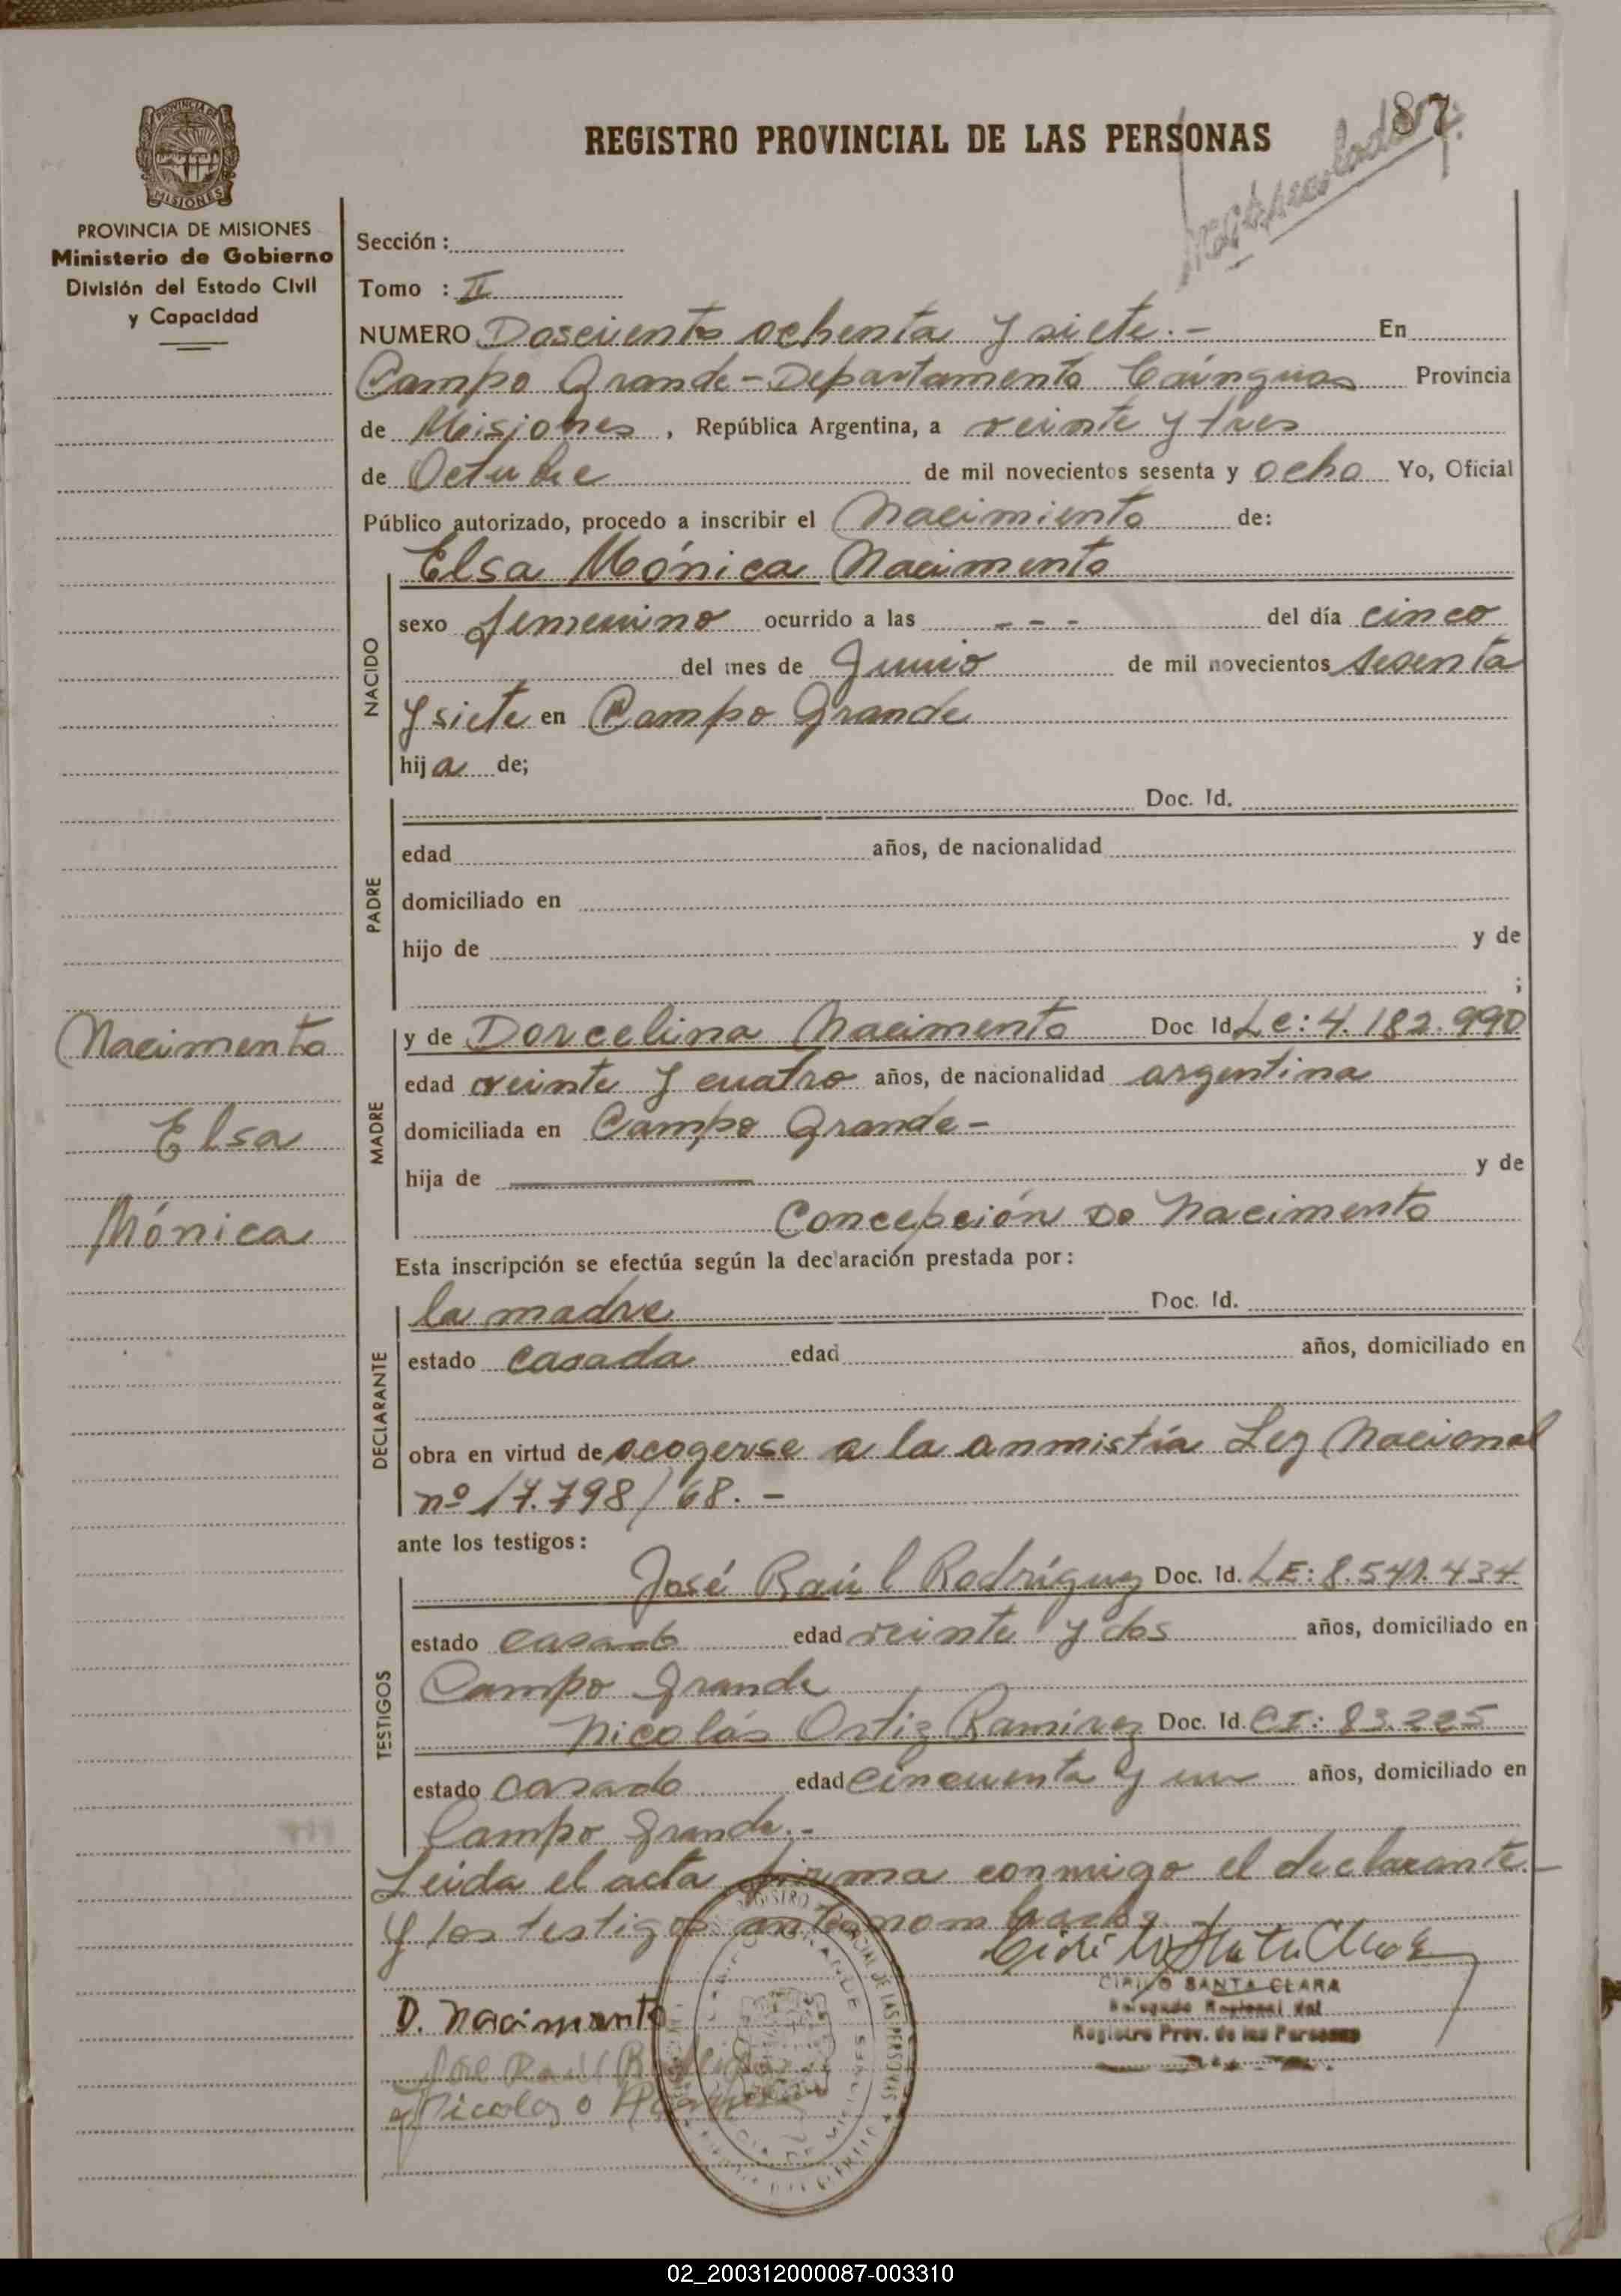 87
REGISTRO PROVINCIAL DE LAS PERSONAS
PROVINCIA DE MISIONES
Ministerio de Gobierno
División del Estado Civil
y Capacidad
Sección :
Tomo : II
NUMERO Doscientos ochenta y siete.- En
Campo Grande - Departamento Cainguas Provincia
de Misiones, República Argentina, a veinte y tres
de Octubre de mil novecientos sesenta y ocho Yo, Oficial
Público autorizado, procedo a inscribir el Nacimiento de:
Elsa Mónica Nacimento
NACIDO
sexo femenino ocurrido a las - - - del día cinco
del mes de Junio de mil novecientos sesenta
y siete en Campo Grande
hija de;
PADRE
Doc. Id.
edad años, de nacionalidad
domiciliado en
hijo de y de
;
Nacimento
Elsa
Mónica
MADRE
y de Dorcelina Nacimento Doc Id Lc: 4.182.990
edad veinte y cuatro años, de nacionalidad argentina
domiciliada en Campo Grande-
hija de y de
Concepción Do Nacimento
Esta inscripción se efectúa según la declaración prestada por:
DECLARANTE
la madre Doc. Id.
estado casada edad años, domiciliado en
obra en virtud de acogerse a la anmistía Ley Nacional
nº 17.798/68.-
ante los testigos:
TESTIGOS
José Raúl Rodríguez Doc. Id. LE: 8.541.434
estado casado edad veinte y dos años, domiciliado en
Campo Grande
Nicolás Ortiz Ramírez Doc. Id. CI: 83.225
estado casado edad cincuenta y un años, domiciliado en
Campo Grande.-
Leida el acta firma conmigo el declarante
y los testigos antenombrados
CIRILO SANTA CLARA
Delegado Regional del
Registro Prov. de las Personas
D. Nacimento
Nicolas O Ramirez
02_200312000087-003310